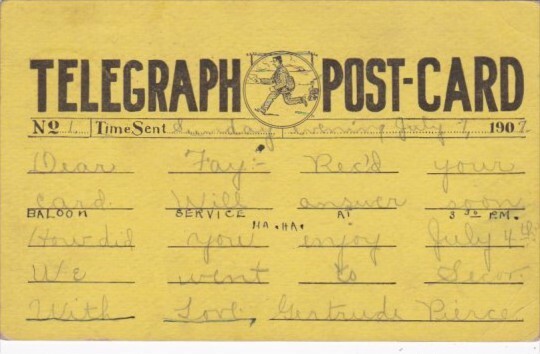 TELEGRAPH POST-CARD
No 1. Time Sent Sunday evening July 7, 1907.
Dear Fay:- Rec'd your
card. Will answer soon
BALOON SERVICE AT 3 30 P.M.
HA.HA.
How did you enjoy July 4th
We went to
With Love, Gertrude Pierce